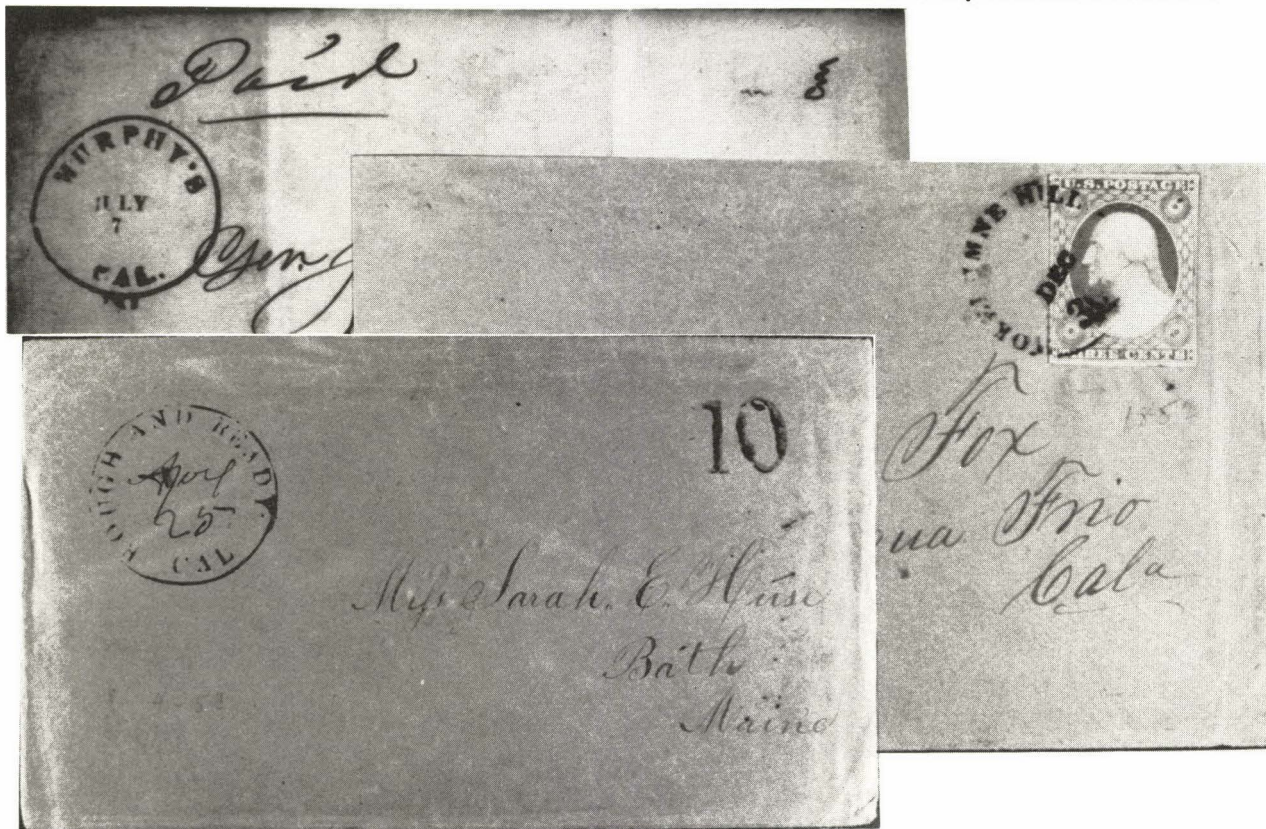 Paid
MURPHY'S
JULY
7
CAL.
Gen
U.S. POSTAGE
MOKELUMNE HILL
DEC
THREE CENTS
Fox
ua Frio
Cala
ROUGH AND READY.
April
25
CAL
10
Miss Sarah. E. Huse
Bath
Maine